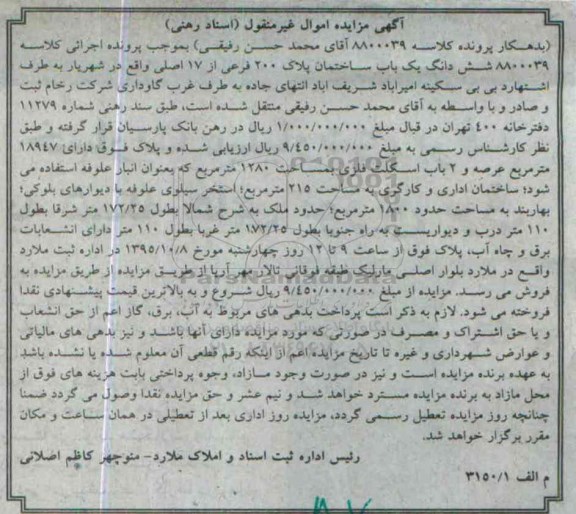 آگهی مزایده اموال غیرمنقول (اسناد رهنی)
(بدهکار پرونده کلاسه ۸۸۰۰۰۳۹ آقای محمد حسن رفیقی) بموجب پرونده اجرائی کلاسه
۸۸۰۰۰۳۹ شش دانگ یک باب ساختمان پلاک ۲۰۰ فرعی از ۱۷ اصلی واقع در شهریار به طرف
اشتهارد بی بی سکینه امیراباد شریف اباد انتهای جاده به طرف غرب گاوداری شرکت رخام ثبت
و صادر و با واسطه به آقای محمد حسن رفیقی منتقل شده است، طبق سند رهنی شماره ۱۱۲۷۹
دفترخانه ۴۰۰ تهران در قبال مبلغ ۱/۰۰۰/۰۰۰/۰۰۰ ریال در رهن بانک پارسیان قرار گرفته و طبق
نظر کارشناس رسمی به مبلغ ۹/۴۵۰/۰۰۰/۰۰۰ ریال ارزیابی شده و پلاک فوق دارای ۱۸۹۴۷
مترمربع عرصه و ۲ باب اسکلت فلزی بمساحت ۱۲۸۰ مترمربع که بعنوان انبار علوفه استفاده می
شود؛ ساختمان اداری و کارگری به مساحت ۲۱۵ مترمربع؛ استخر سیلوی علوفه با دیوارهای بلوکی؛
بهاربند به مساحت حدود ۱۸۰۰ مترمربع؛ حدود ملک به شرح شمالا بطول ۱۷۲/۲۵ متر شرقا بطول
۱۱۰ متر درب و دیواریست به راه جنوبا بطول ۱۷۲/۲۵ متر غربا بطول ۱۱۰ متر دارای انشعابات
برق و چاه آب، پلاک فوق از ساعت ۹ تا ۱۲ روز چهارشنبه مورخ ۱۳۹۵/۱۰/۸ در اداره ثبت ملارد
واقع در ملارد بلوار اصلی مارلیک طبقه فوقانی تالار مهر آریا از طریق مزایده از طریق مزایده به
فروش می رسد. مزایده از مبلغ ۹/۴۵۰/۰۰۰/۰۰۰ ریال شروع و به بالاترین قیمت پیشنهادی نقدا
فروخته می شود. لازم به ذکر است پرداخت بدهی های مربوط به آب، برق، گاز اعم از حق انشعاب
و یا حق اشتراک و مصرف در صورتی که مورد مزایده دارای آنها باشد و نیز بدهی های مالیاتی
و عوارض شهرداری و غیره تا تاریخ مزایده اعم از اینکه رقم قطعی آن معلوم شده یا نشده باشد
به عهده برنده مزایده است و نیز در صورت وجود مازاد، وجوه پرداختی بابت هزینه های فوق از
محل مازاد به برنده مزایده مسترد خواهد شد و نیم عشر و حق مزایده نقدا وصول می گردد ضمنا
چنانچه روز مزایده تعطیل رسمی گردد، مزایده روز اداری بعد از تعطیلی در همان ساعت و مکان
مقرر برگزار خواهد شد.
رئیس اداره ثبت اسناد و املاک ملارد- منوچهر کاظم اصلانی
م الف ۳۱۵۰/۱